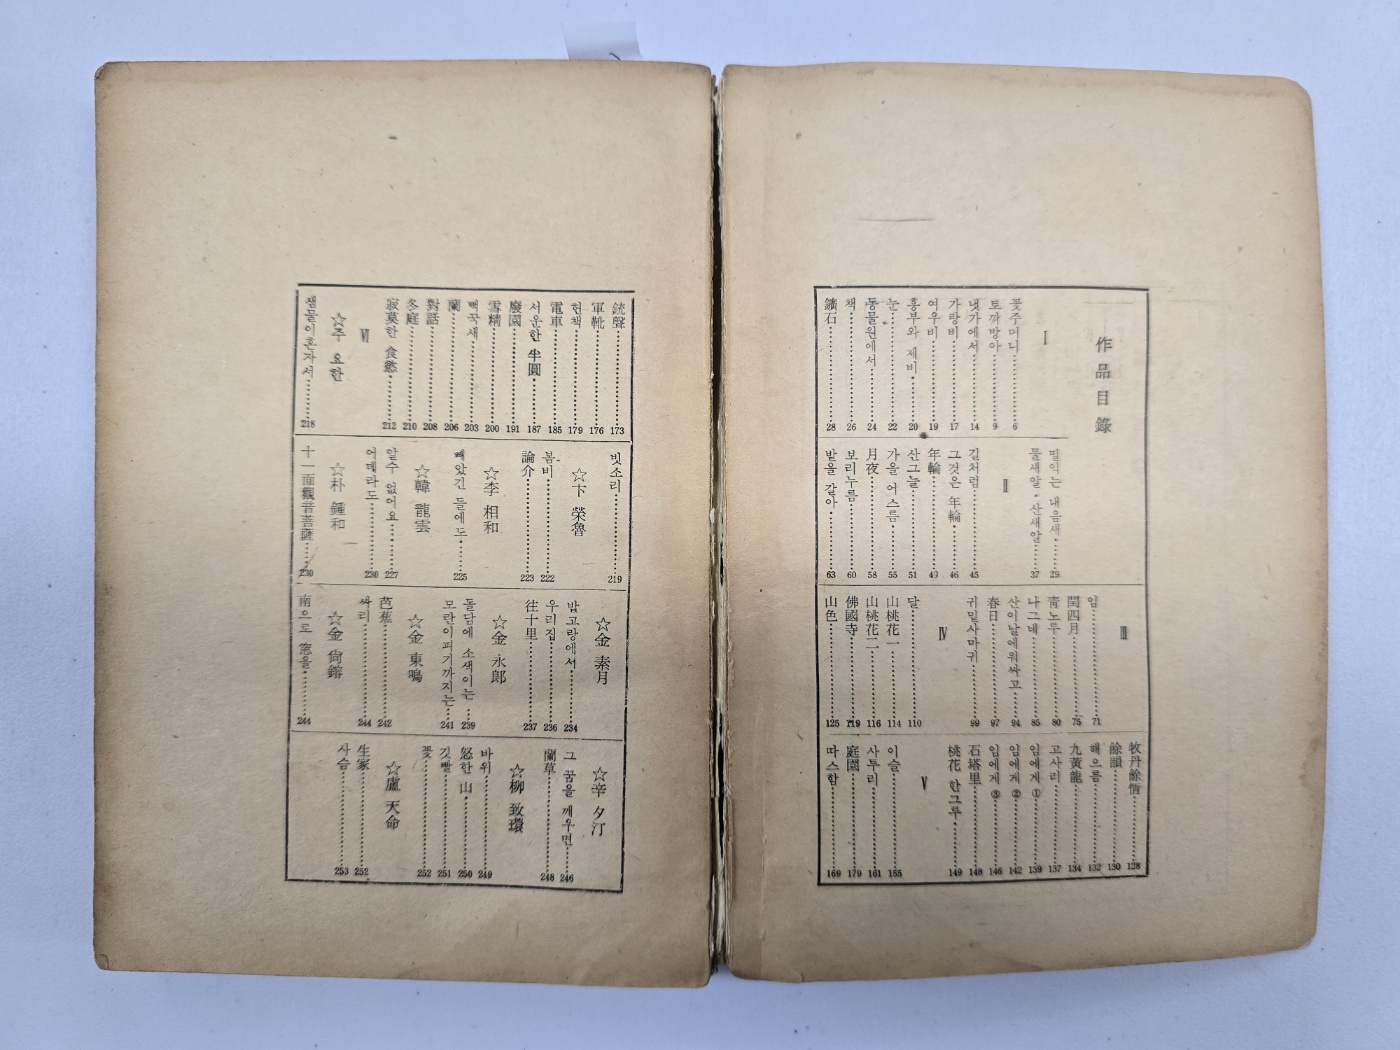 作品目錄
Ⅰ
꽃주머니 6
토끼방아 9
냇가에서 14
가랑비 17
여우비 19
흥부와 제비 20
눈 22
동물원에서 24
책 26
鑛石 28
밀익는 내음새 29
물새알·산새알 37
Ⅱ
길처럼 45
그것은 年輪 46
年輪 49
산그늘 51
가을 어스름 55
月夜 58
보리누름 60
밭을 갈아 63
Ⅲ
임 71
閏四月 75
靑노루 80
나그네 85
산이날에워싸고 94
春日 97
귀밑사마귀 99
Ⅳ
달 110
山桃花一 114
山桃花二 116
佛國寺 119
山色 125
牧丹餘情 128
餘韻 130
해으름 132
九黃龍 134
고사리 137
임에게 ① 139
임에게 ② 142
임에게 ③ 146
石塔里 148
桃花 한그루 149
Ⅴ
이슬 155
사투리 161
庭園 179
따스함 169
銃聲 173
軍靴 176
헌책 179
電車 185
서운한 半圓 187
廢園 191
雪精 200
뻐꾹새 203
蘭 206
對話 208
冬庭 210
寂莫한 食慾 212
Ⅵ
☆주 요한
샘물이혼자서 218
빗소리 219
☆卞 榮魯
봄비 222
論介 223
☆李 相和
빼았긴 들에도 225
☆韓 龍雲
알수 없어요 227
어데라도 230
☆朴 鍾和
十一面觀音菩薩 230
☆金 素月
밭고랑에서 234
우리집 236
往十里 237
☆金 永郞
돌담에 소색이는 239
모란이피기까지는 241
☆金 東鳴
芭蕉 242
싸리 244
☆金 尙鎔
南으로 窓을 244
☆辛 夕汀
그 꿈을 깨우면 246
蘭草 248
☆柳 致環
바위 249
怒한 山 250
깃빨 251
꽃 252
☆盧 天命
生家 252
사슴 253